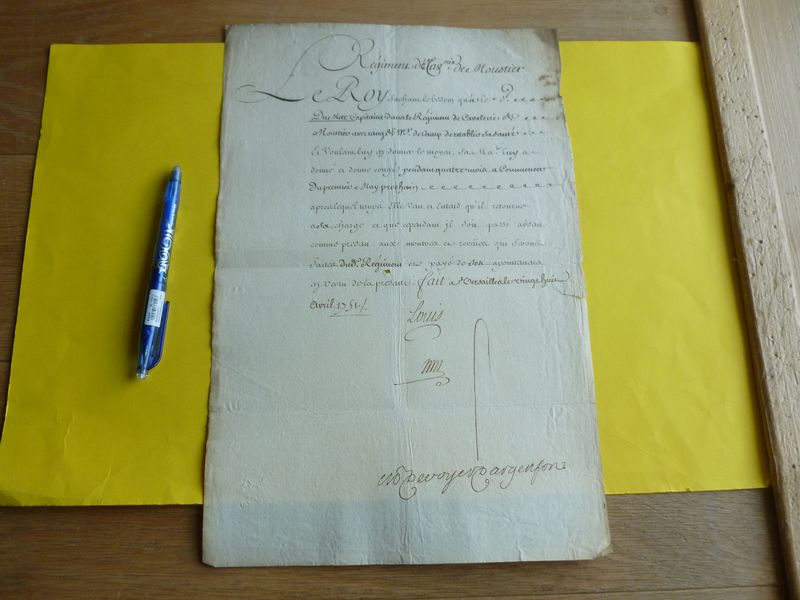 Régiment de Cav.rie de Moustier
Le Roy Sachant le besoin qu'a le S.
Capitaine dans le Régiment de Cavalerie de
Moustier avec rang de M.e de Camp de retablir sa santé
Et Voulant luy en donner le moyen, Sa Ma.té luy a
donné et donne congé pendant quatre mois a Commencer
Du premier May prochain
apres lequel temps Elle Veut et Entend qu'il retourne
a sa charge et que cependant il soit passé absent
comme present aux montres et reveües qui seront
faites dud. Régiment et payé de ses apointemens
en vertu de la presente. Fait a Versailles le vingt huit
Avril 1751./.
Louis
M de Voyer d'argenson